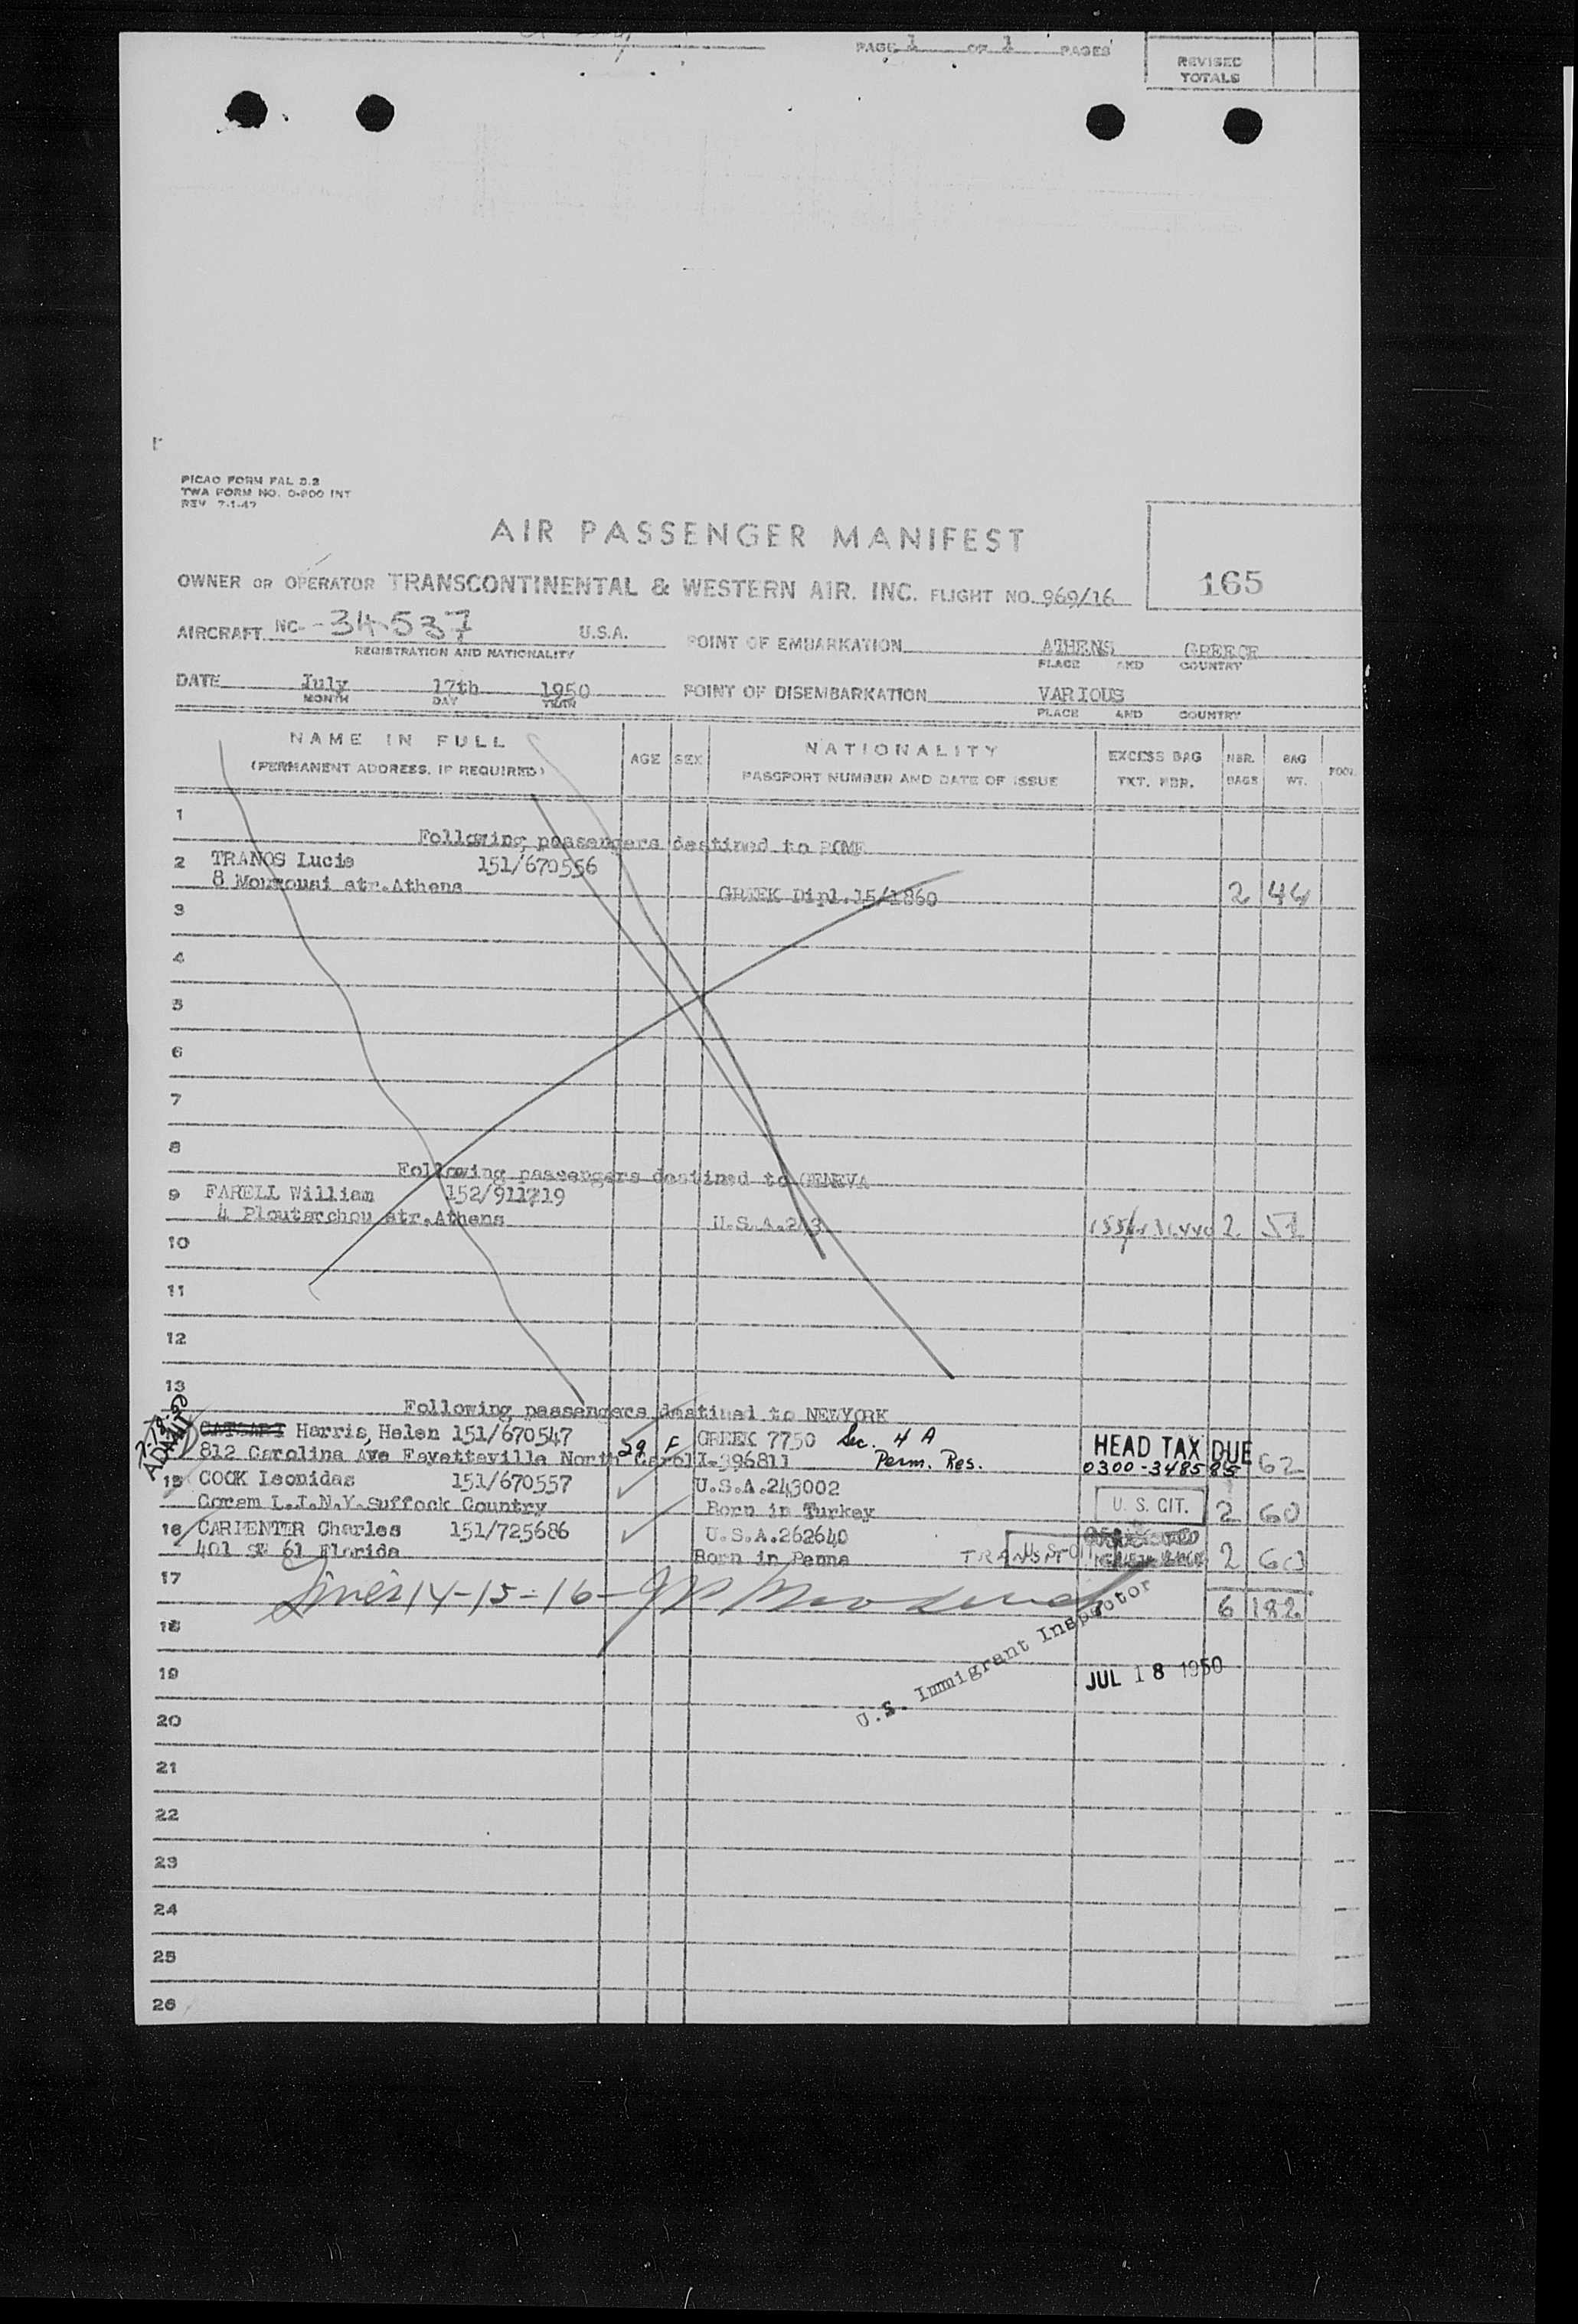 PAGE 1 OF 1 PAGES
REVISED
TOTALS
PICAO FORM FAL 3.2
TWA FORM NO. O-200 INT
REV 7-1-47
AIR PASSENGER MANIFEST
165
OWNER OR OPERATOR TRANSCONTINENTAL & WESTERN AIR. INC. FLIGHT NO. 969/16
AIRCRAFT NC-34537 U.S.A. POINT OF EMBARKATION ATHENS GREECE
REGISTRATION AND NATIONALITY PLACE AND COUNTRY
DATE July 17th 1950 POINT OF DISEMBARKATION VARIOUS
MONTH DAY YEAR PLACE AND COUNTRY
NAME IN FULL AGE SEX NATIONALITY EXCESS BAG NBR. BAG
(PERMANENT ADDRESS, IF REQUIRED) PASSPORT NUMBER AND DATE OF ISSUE TKT. NBR. BAGS WT.
1
Following passengers destined to ROME
2 TRANOS Lucie 151/670556
8 Mourousi str.Athens GREEK Dipl.15/1860 2 44
3
4
5
6
7
8
Following passengers destined to GENEVA
9 FARELL William 152/911719
4 Ploutarchou str.Athens U.S.A.243 2 51
10
11
12
13
Following passengers destined to NEWYORK
Harris, Helen 151/670547 29 F GREEK 7750 Sec. 4 A HEAD TAX DUE
812 Carolina Ave Fayetteville North Carol I-396811 Perm. Res. 0300-348585 62
15 COOK Leonidas 151/670557 U.S.A.243002
Coram L.I.N.Y.Suffock Country Born in Turkey U. S. CIT. 2 60
16 CARPENTER Charles 151/725686 U.S.A.262640
401 SW 61 Florida Born in Penna TRANSIT 2 60
17 Lines 14-15-16- 6 182
18
U.S. Immigrant Inspector
19 JUL 18 1950
20
21
22
23
24
25
26